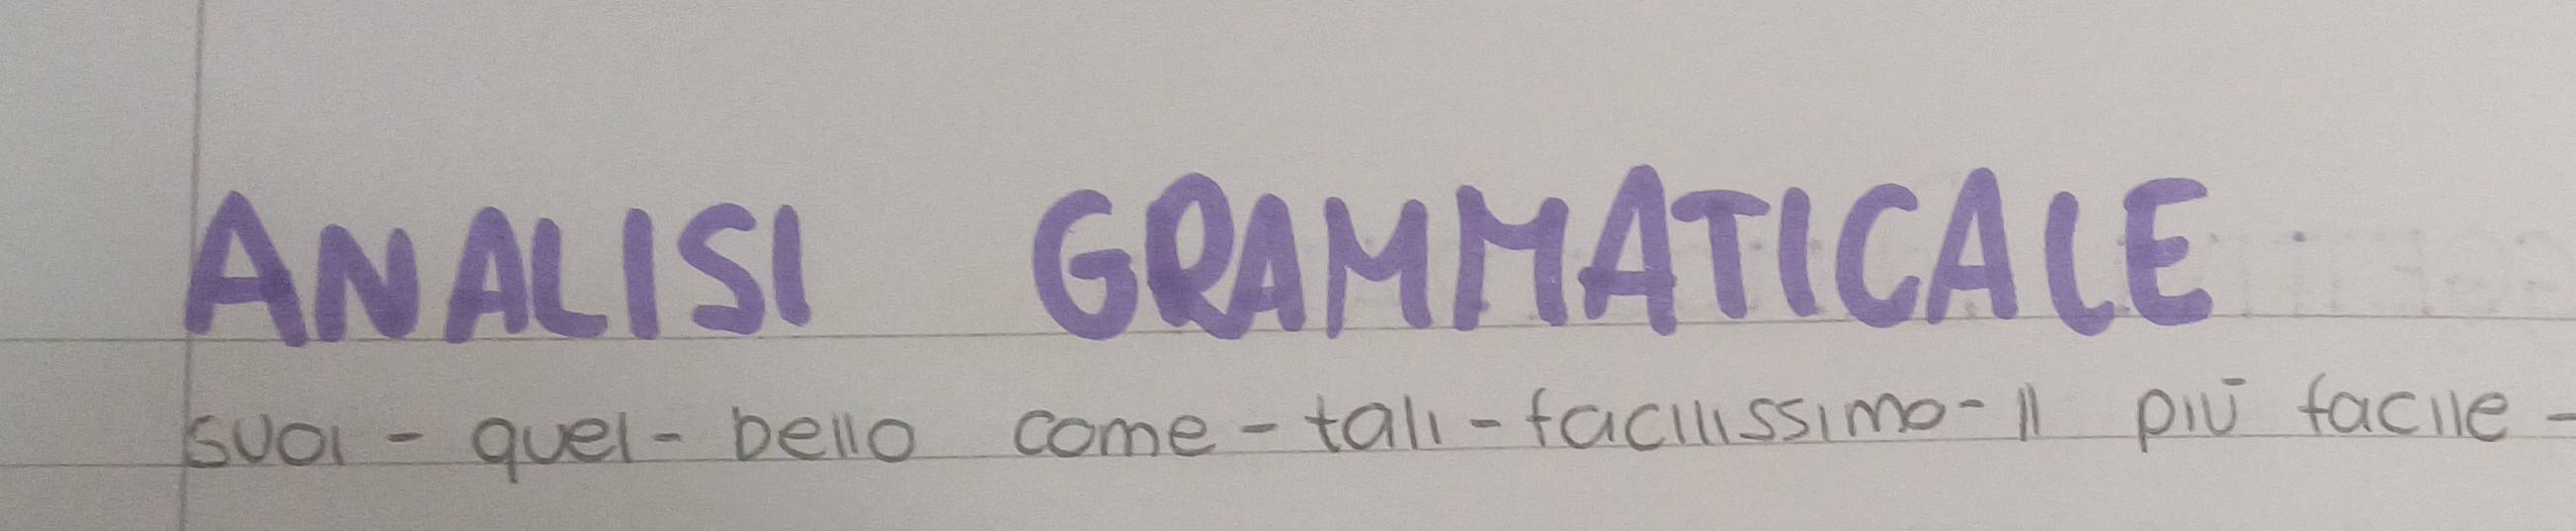 ANALISI GRAMMATICALE
suoi - quel - bello come - tali - facilissimo - il più facile -